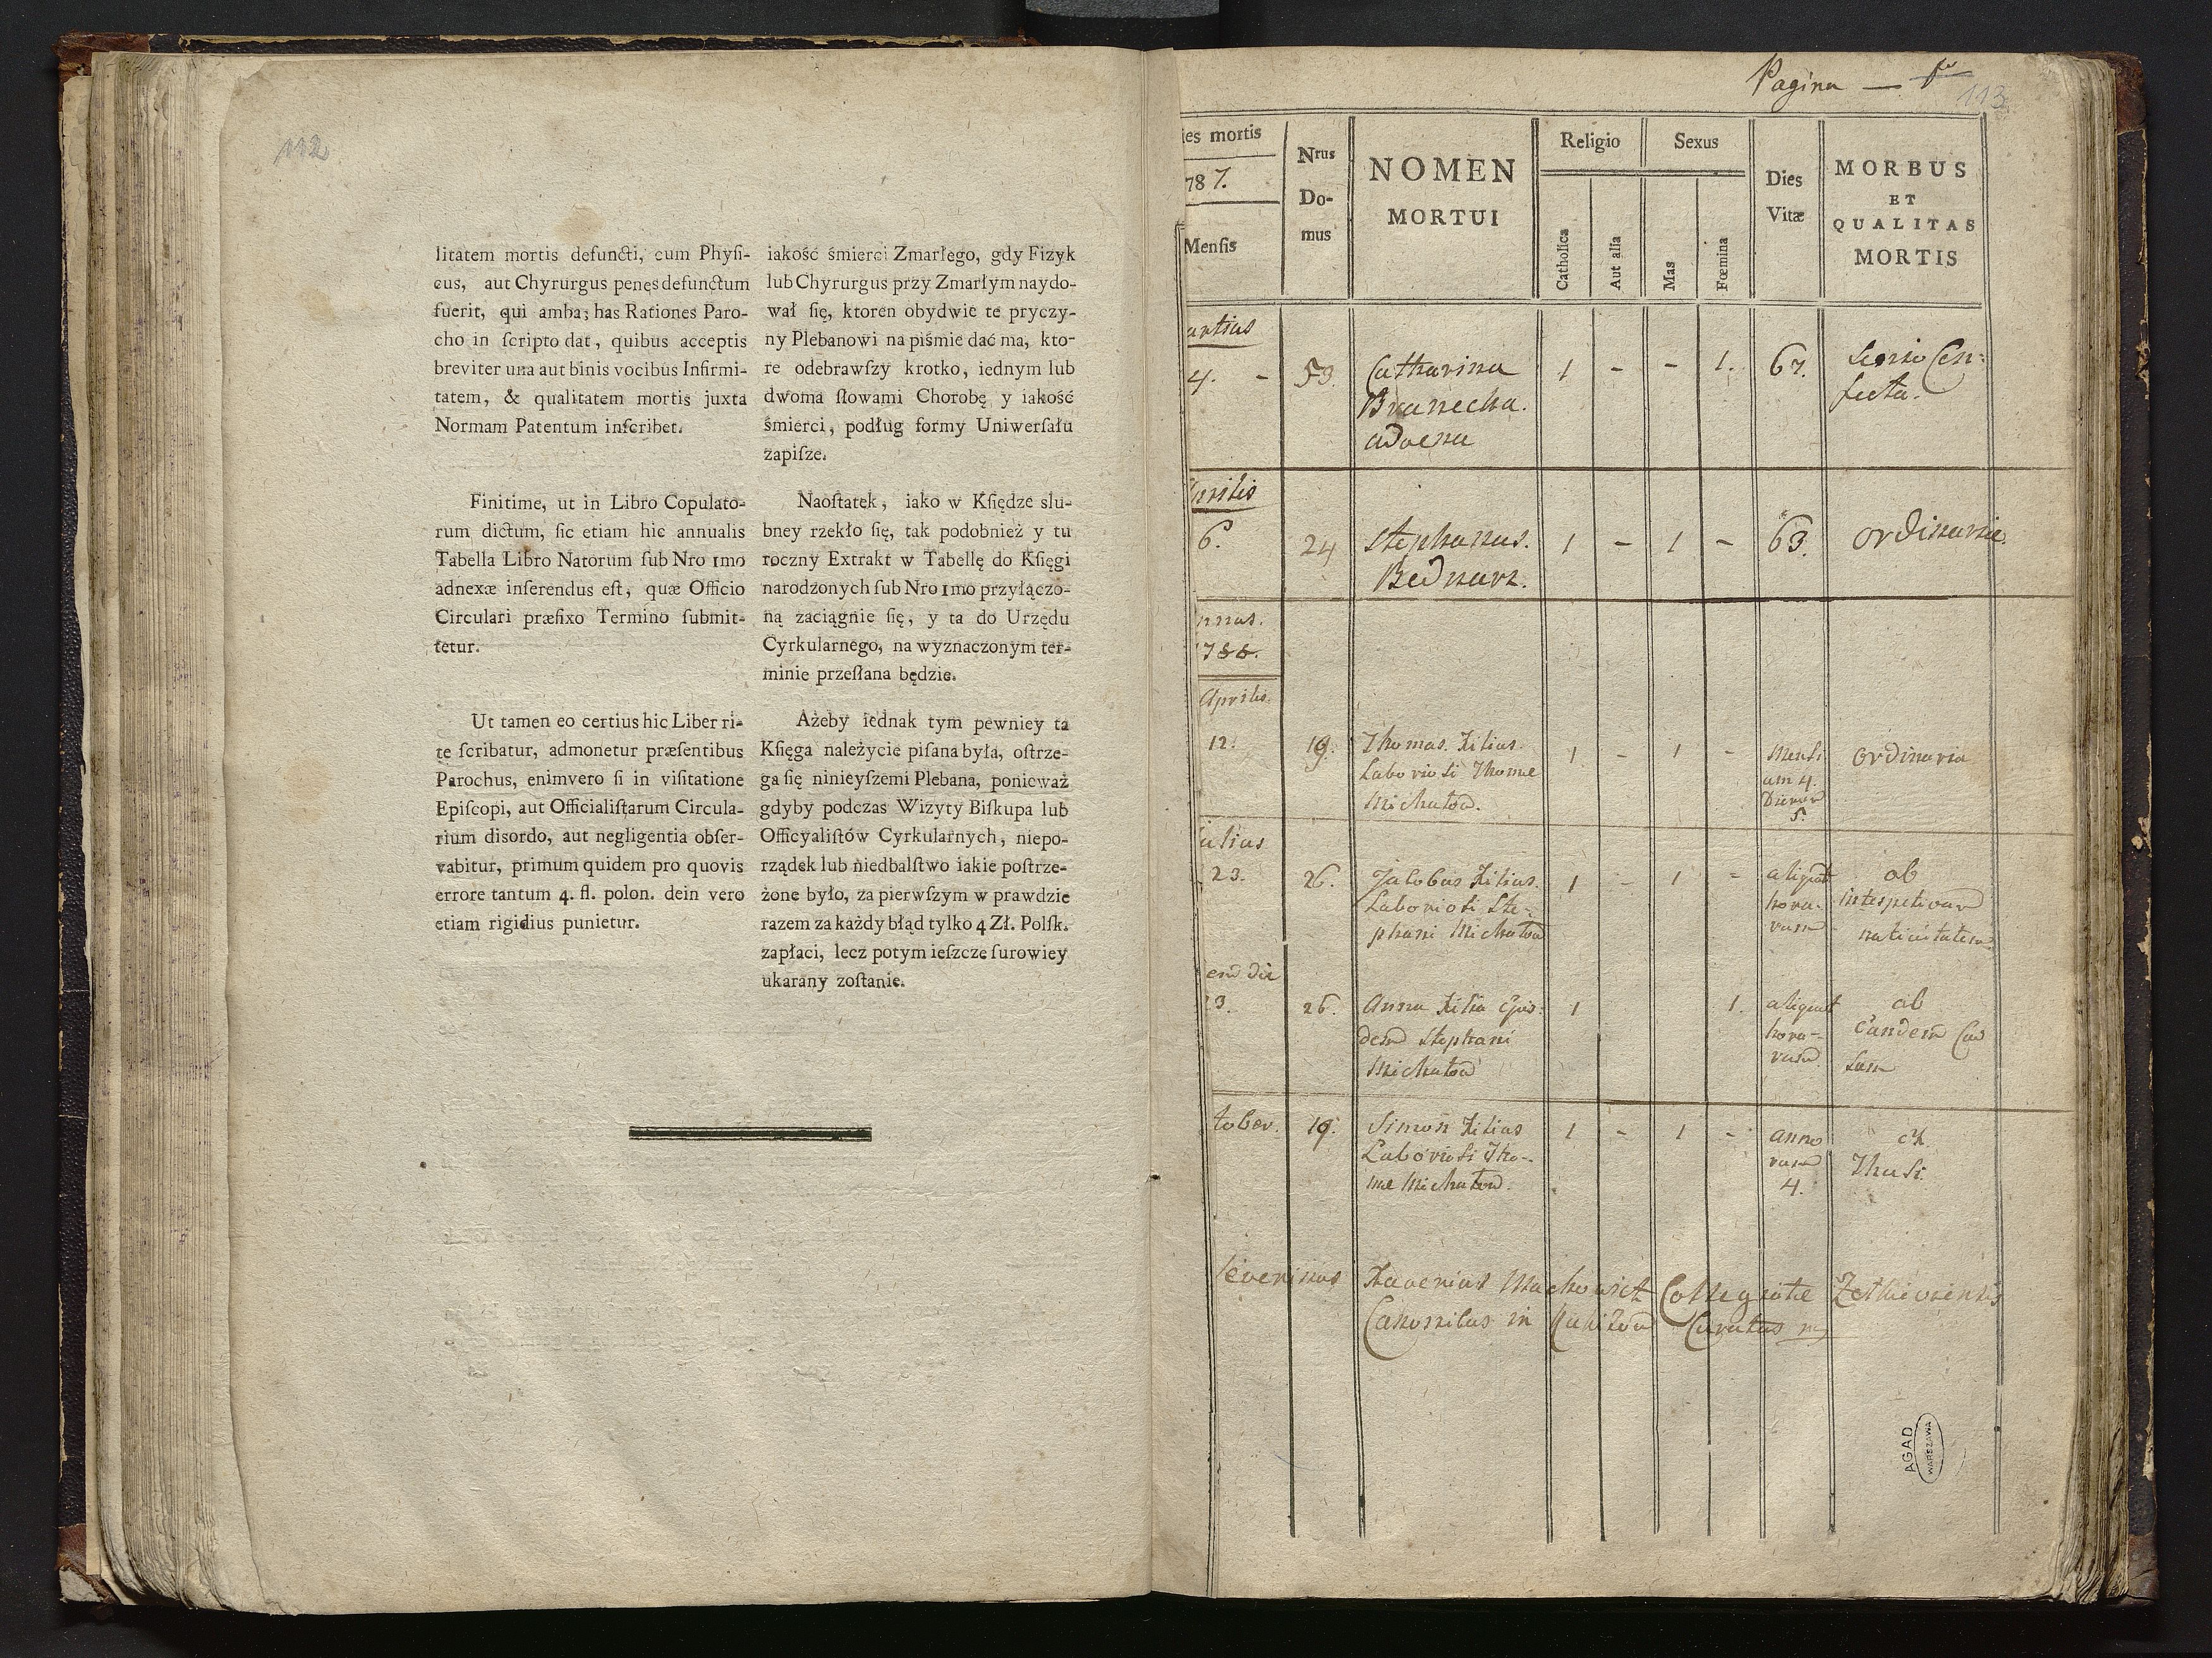 112
litatem mortis defuncti, cum Physi-
cus, aut Chyrurgus penes defunctum
fuerit, qui amba; has Rationes Paro-
cho in scripto dat, quibus acceptis
breviter una aut binis vocibus Infirmi-
tatem, & qualitatem mortis juxta
Normam Patentum inscribet.
Finitime, ut in Libro Copulato-
rum dictum, sic etiam hic annualis
Tabella Libro Natorum sub Nro 1mo
adnexæ inserendus est, quæ Officio
Circulari præfixo Termino submit-
tetur.
Ut tamen eo certius hic Liber ri-
te scribatur, admonetur præsentibus
Parochus, enimvero si in visitatione
Episcopi, aut Officialistarum Circula-
rium disordo, aut negligentia obser-
vabitur, primum quidem pro quovis
errore tantum 4. fl. polon. dein vero
etiam rigidius punietur.
iakość śmierci Zmarłego, gdy Fizyk
lub Chyrurgus przy Zmarłym naydo-
wał się, ktoren obydwie te pryczy-
ny Plebanowi na piśmie dać ma, kto-
re odebrawszy krotko, iednym lub
dwoma słowami Chorobę y iakość
śmierci, podług formy Uniwersału
zapisze.
Naostatek, iako w Księdze slu-
bney rzekło się, tak podobnież y tu
roczny Extrakt w Tabellę do Księgi
narodzonych sub Nro 1mo przyłączo-
ną zaciągnie się, y ta do Urzędu
Cyrkularnego, na wyznaczonym ter-
minie przesłana będzie.
Ażeby iednak tym pewniey ta
Księga należycie pisana była, ostrze-
ga się ninieyszemi Plebana, ponieważ
gdyby podczas Wizyty Biskupa lub
Officyalistów Cyrkularnych, niepo-
rządek lub niedbalstwo iakie postrze-
żone było, za pierwszym w prawdzie
razem za każdy błąd tylko 4 Zł. Polsk.
zapłaci, lecz potym ieszcze surowiey
ukarany zostanie.
Pagina — 1ma
113
ies mortis
787.
Mensis
Nrus
Do-
mus
NOMEN
MORTUI
Religio
Catholica
Aut alia
Sexus
Mas
Fœmina
Dies
Vitæ
MORBUS
ET
QUALITAS
MORTIS
artius
4. - 53. Catharina 1 - - 1. 67. Senio Con=
Branecka. fecta.
advena
prilis
6. 24 Stephanus. 1 - 1 - 63. ordinaria
Bednarz.
nnus.
1786.
Aprilis.
12. 19. Thomas. Filius. 1 - 1 - Mensi ordinaria
Laboriosi Thomæ um 4.
Michałow. Dierum
5.
ulius
23. 26. Jacobus Filius. 1 - 1 - aliquot ab
Laboriosi Ste- hora- intespetivam
phani Michałow rum nativitatem
em die
23. 26. Anna Filia ejus- 1 1. aliquot ab
dem Stephani hora- eandem Cau
Michałow rum sam
tober. 19. Simon Filius 1 - 1 - anno ex
Laboriosi Tho- rum Thusi.
mæ Michałow. 4.
Severinus Xaverius Machowicz Collegiatæ Zołkieviensis
Canonicus in Curatus
AGAD
WARSZAWA